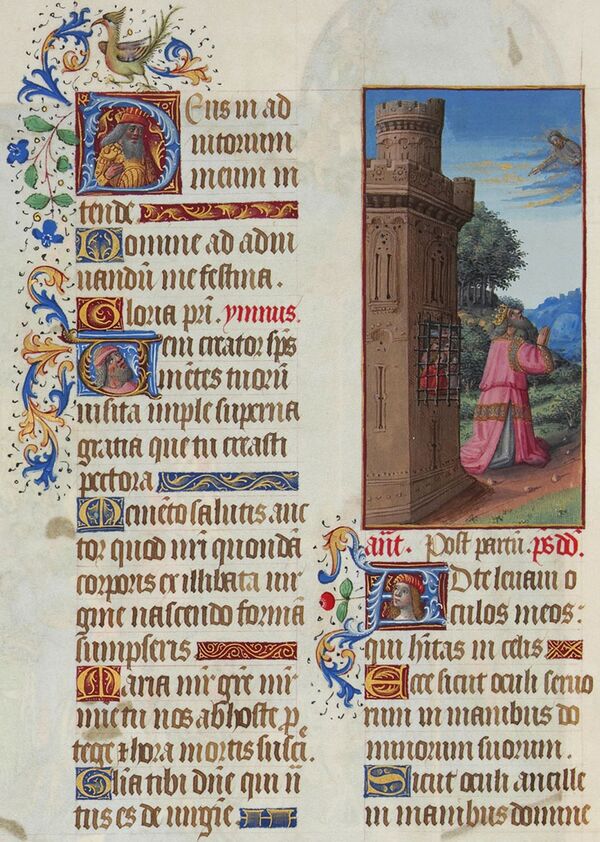 Deus in ad
iutorium
meum in
tende
Domine ad adiu
uandū me festina.
Gloria pr̄i. ymnus.
Ueni creator sp̄s
mētes tuorū
uisita imple superna
gratia que tu creasti
pectora
Memēto salutis auc
tor quod nr̄i quondā
corporis ex illibata uir
gine nascendo formā
sumpseris
Maria mr̄ gr̄e mr̄
mie tu nos ab hoste p̄
tege & hora mortis susci.
Gl̄ia tibi dn̄e qui n̄
tus es de uirgīe
an̄t. Post partū. ps̄ dd̄.
Ad te leuaui o
culos meos:
qui hītas in celis
Ecce sicut oculi seruo
rum in manibus do
minorum suorum.
Sicut oculi ancille
in manibus domine